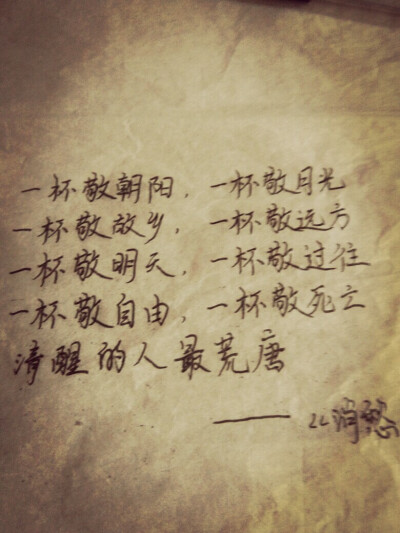 一杯敬朝阳，一杯敬月光
一杯敬故乡，一杯敬远方
一杯敬明天，一杯敬过往
一杯敬自由，一杯敬死亡
清醒的人最荒唐
——《消愁